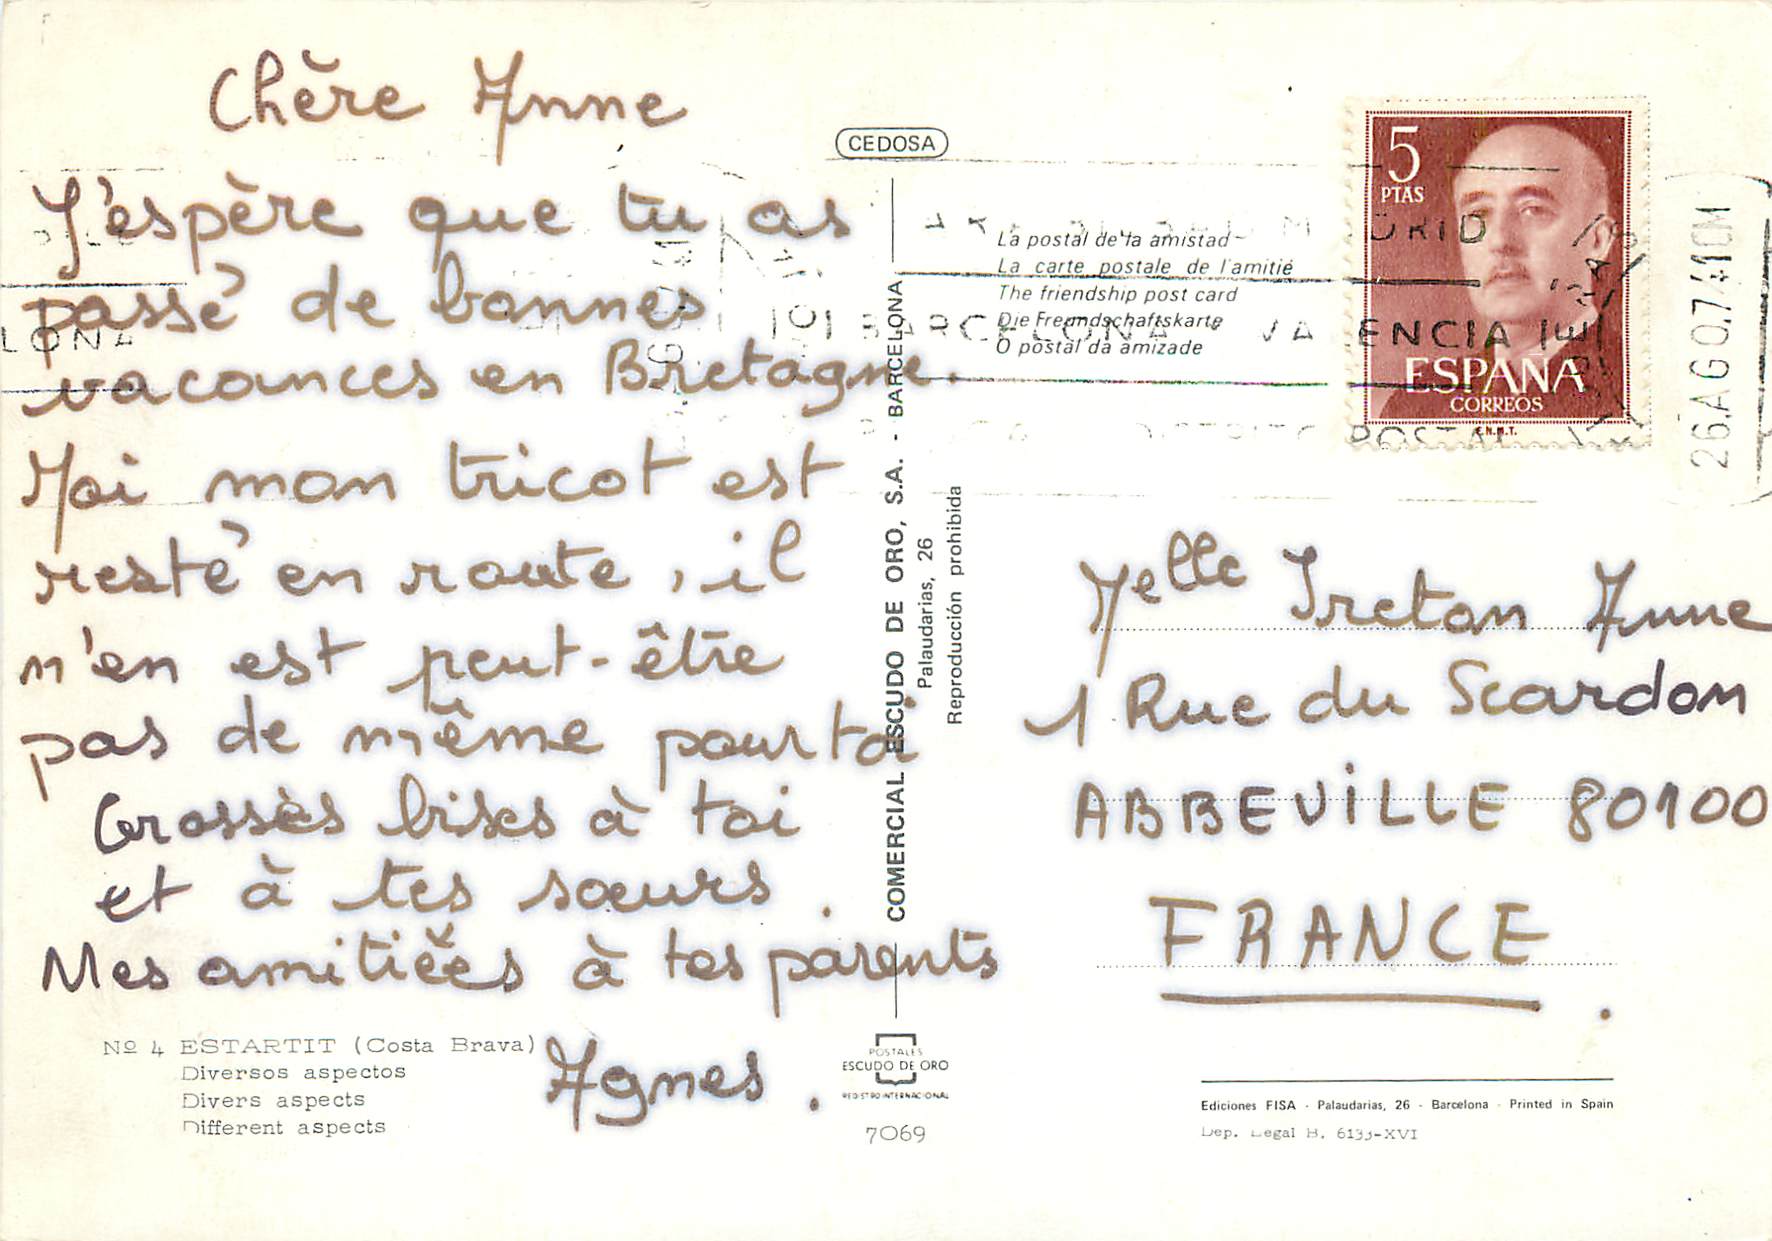 Chère Anne
J'espère que tu as
passé de bonnes
vacances en Bretagne.
Moi mon tricot est
resté en route, il
n'en est peut-être
pas de même pour toi
Grosses bises à toi
et à tes sœurs.
Mes amitiées à tes parents
Agnes.
Nº 4 ESTARTIT (Costa Brava)
Diversos aspectos
Divers aspects
Different aspects
CEDOSA
COMERCIAL ESCUDO DE ORO, S.A. - BARCELONA
Palaudarias, 26
Reproducción prohibida
POSTALES
ESCUDO DE ORO
REGISTRO INTERNACIONAL
7069
La postal de la amistad
La carte postale de l'amitié
The friendship post card
Die Freundschaftskarte
O postal da amizade
5
PTAS
ESPAÑA
CORREOS
F.N.M.T.
LONA
MADRID
BARCELONA VALENCIA
DISTRITO POSTAL
26.AGO.74
Melle Treton Anne
1 Rue du Scardon
ABBEViLLE 80100
FRANCE.
Ediciones FISA - Palaudarias, 26 - Barcelona - Printed in Spain
Dep. Legal B. 6133-XVI